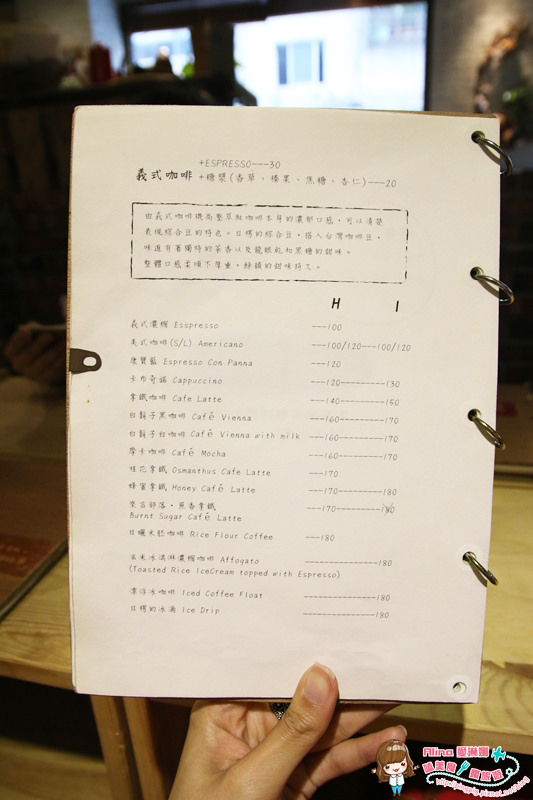 +ESPRESSO---30
義式咖啡 +糖漿(香草、榛果、焦糖、杏仁)---20
由義式咖啡機高壓萃取咖啡本身的濃郁口感，可以清楚
表現綜合豆的特色。日楞的綜合豆，搭入台灣咖啡豆，
味道有著獨特的茶香以及龍眼乾和黑糖的甜味。
整體口感柔順不厚重，綿韻的甜味持久。
H I
義式濃縮 Esspresso ---100
美式咖啡(S/L) Americano ---100/120---100/120
康寶藍 Espresso Con Panna ---120
卡布奇諾 Cappuccino ---120---------130
拿鐵咖啡 Cafe Latte ---140---------150
白鬍子黑咖啡 Café Vienna ---160---------170
白鬍子白咖啡 Café Vienna with milk ---160---------170
摩卡咖啡 Café Mocha ---160---------170
桂花拿鐵 Osmanthus Cafe Latte ---170
蜂蜜拿鐵 Honey Café Latte ---170---------180
來吉部落·焦香拿鐵
Burnt Sugar Café Latte ---170---------180
日曬米胚咖啡 Rice Flour Coffee ---180
玄米冰淇淋濃縮咖啡 Affogato ---------------180
(Toasted Rice IceCream topped with Espresso)
漂浮冰咖啡 Iced Coffee Float ---------------180
日楞的冰滴 Ice Drip ---------------180
Alina 愛琳娜